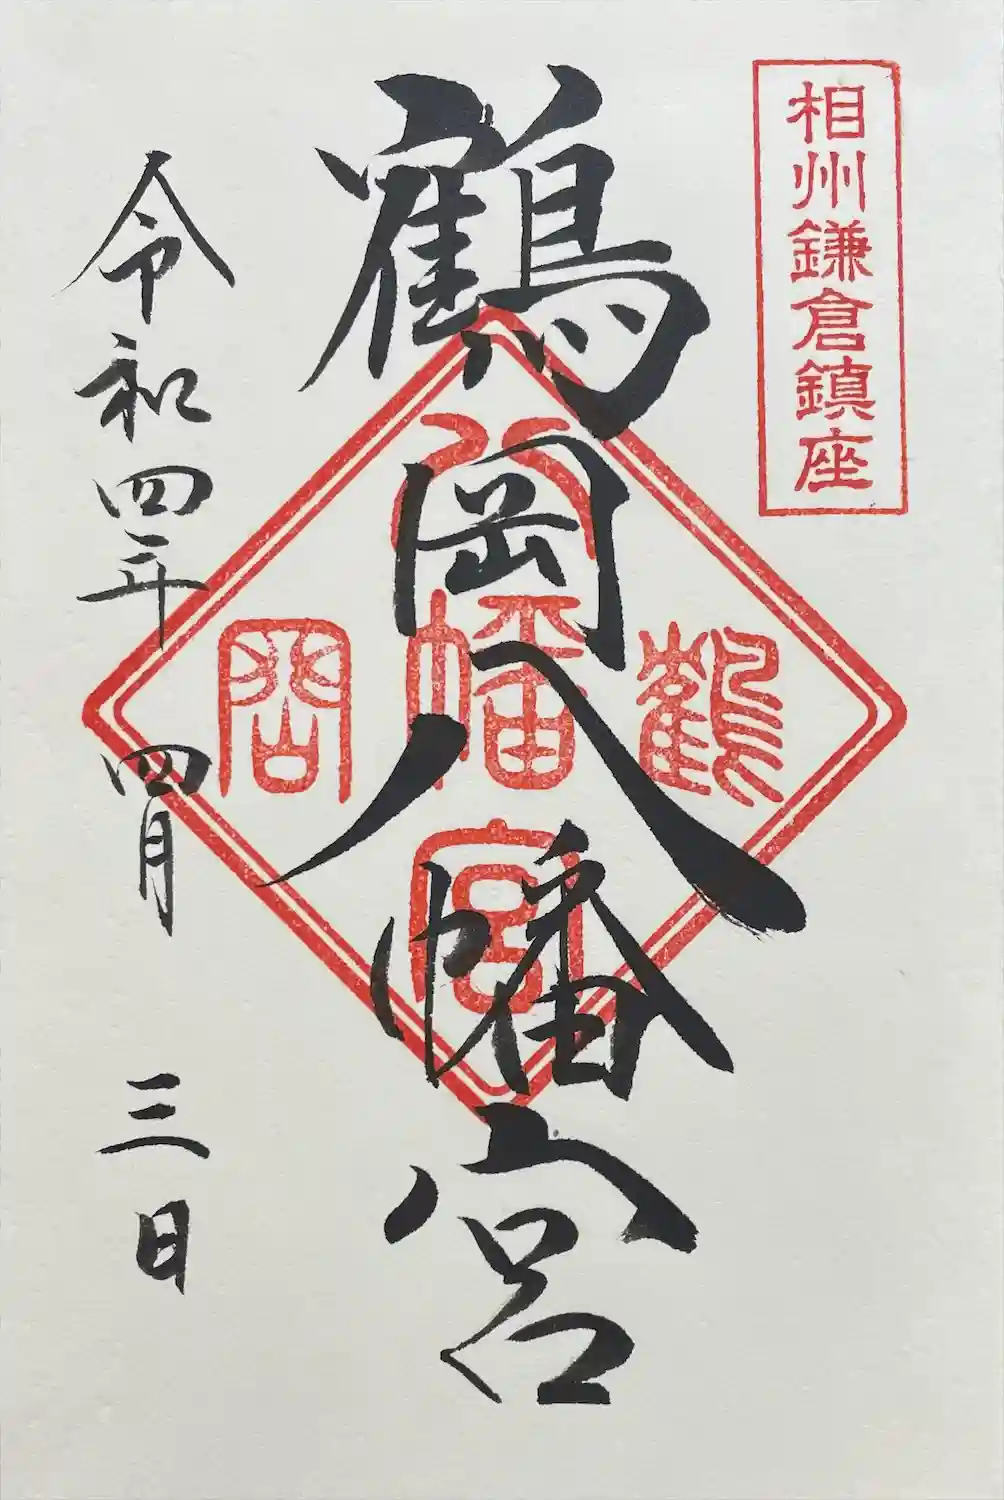 相州鎌倉鎮座
鶴岡八幡宮
八
鶴幡岡
宮
令和四年四月三日